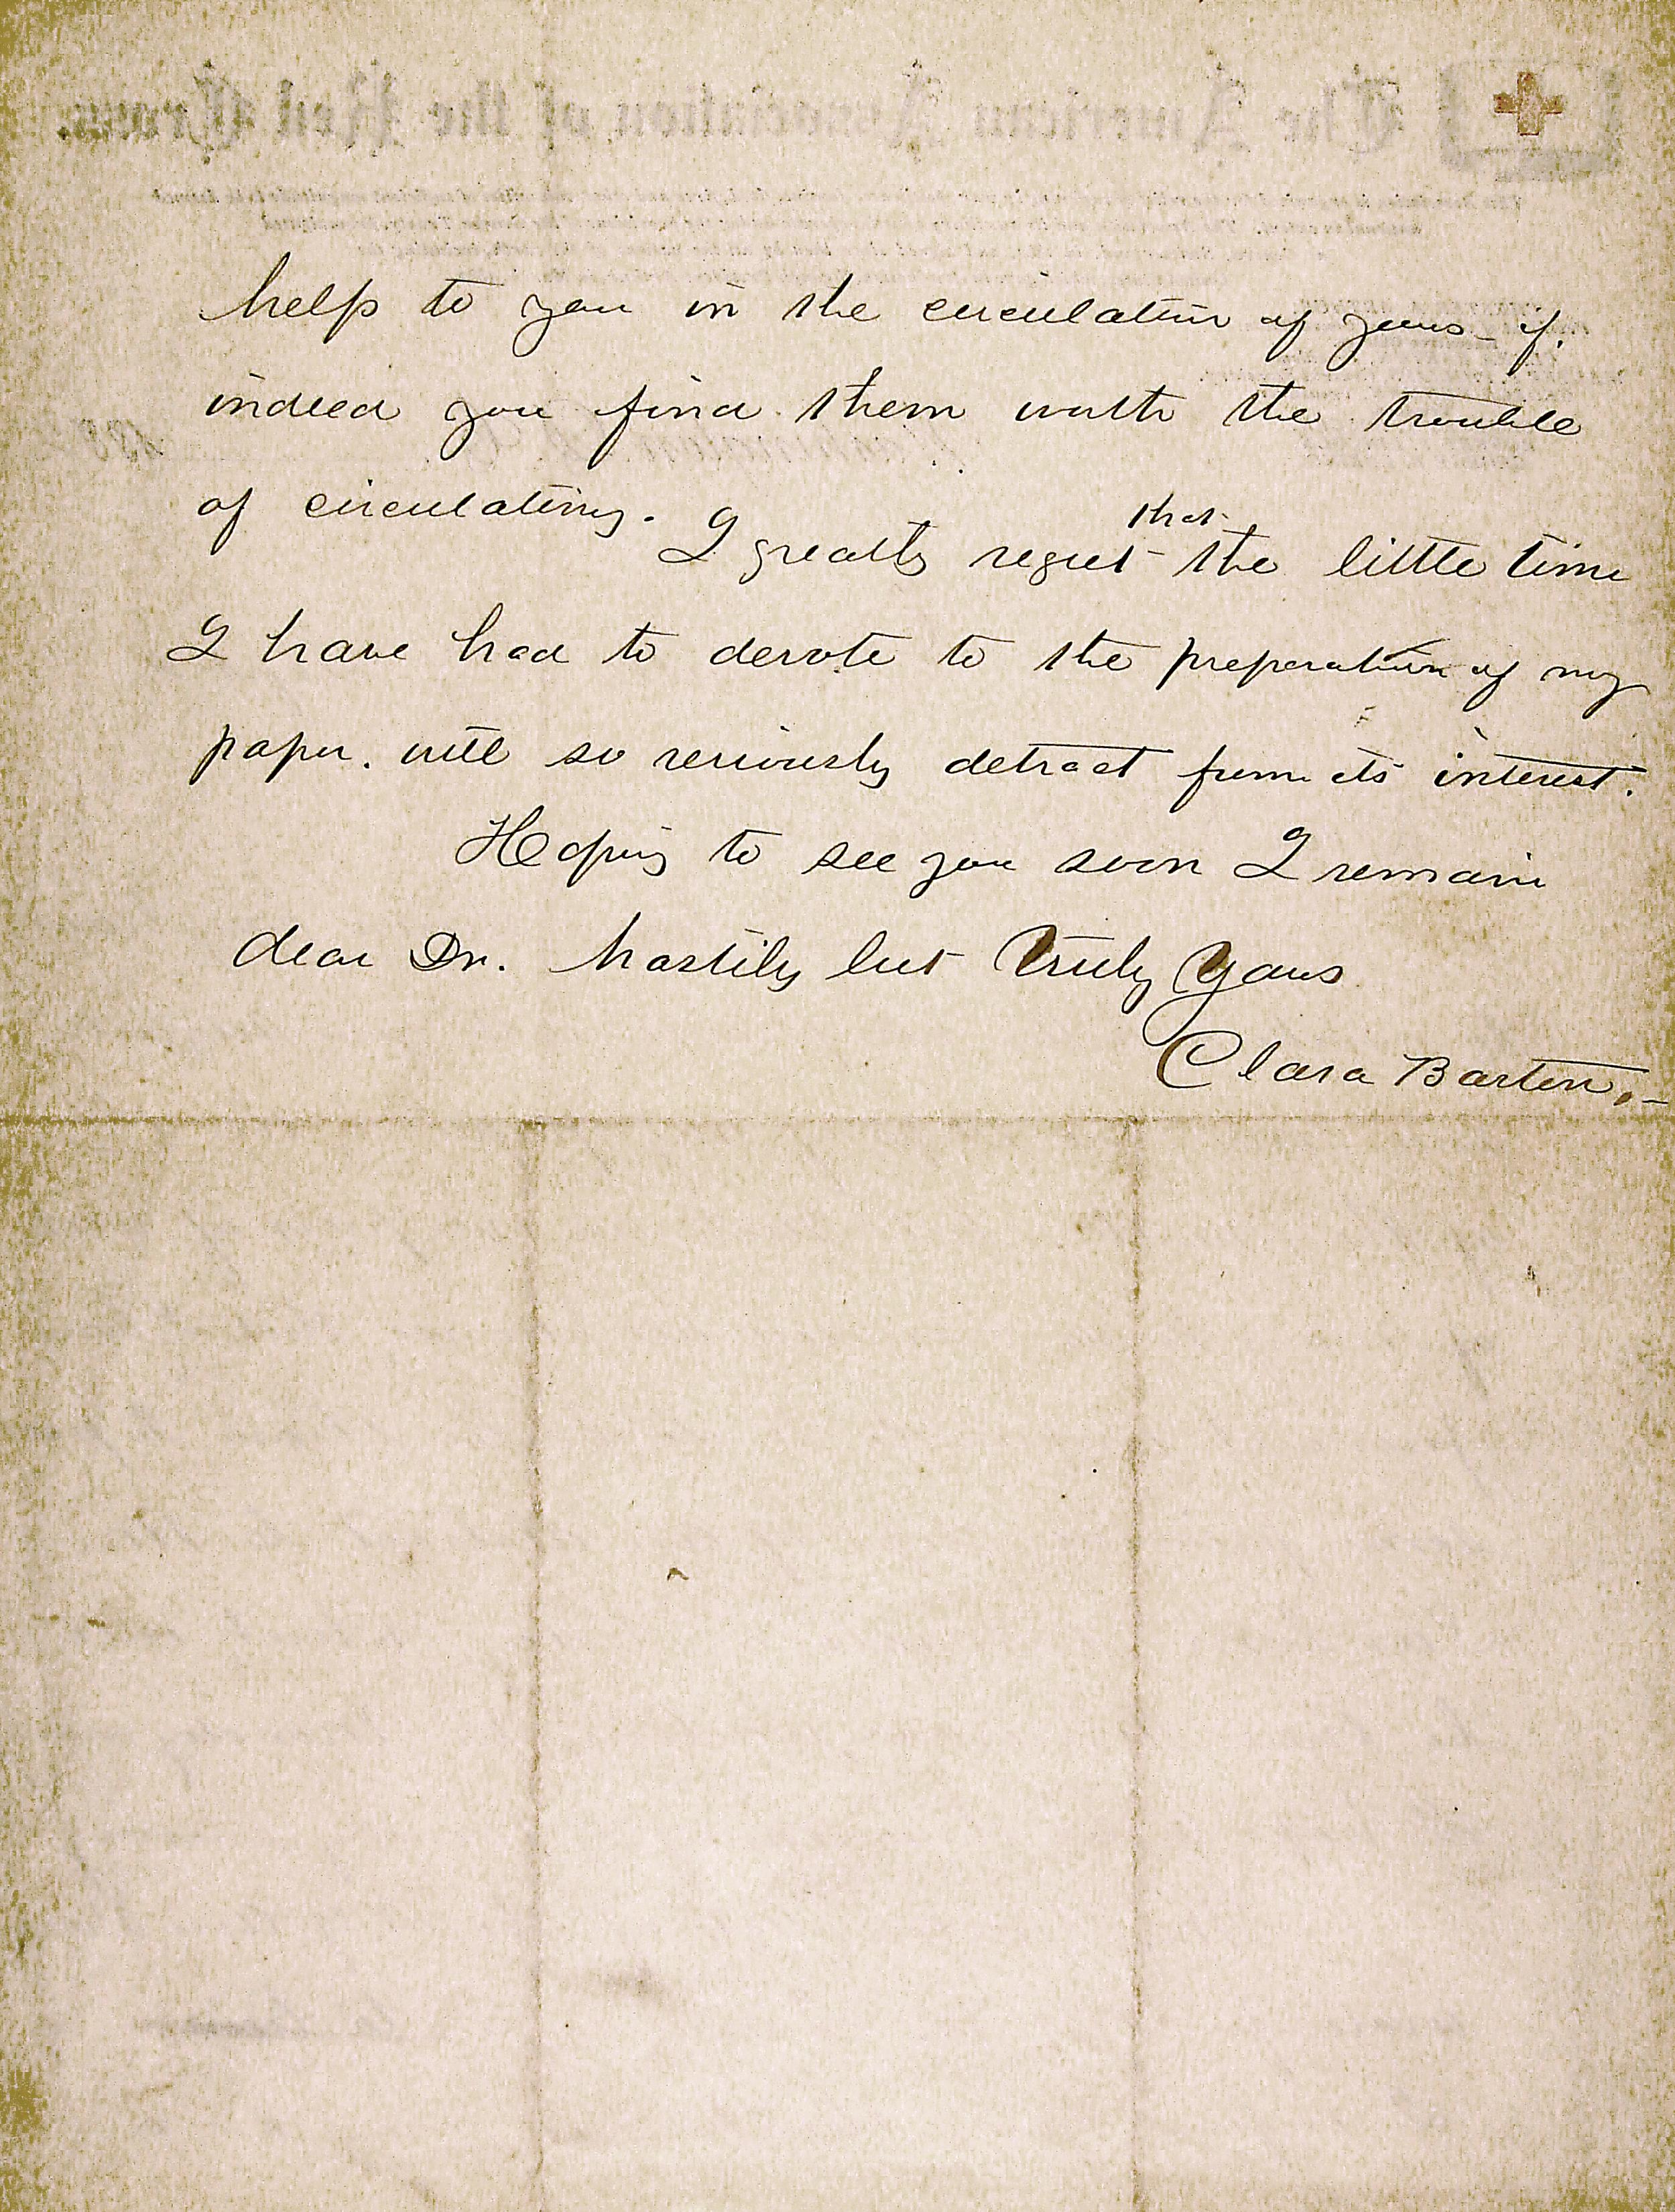 The American Association of the Red Cross.
help to you in the circulation of yours – if.
indeed you find them worth the trouble
of circulating. I greatly regret that the little time
I have had to devote to the preparation of my
paper. will so seriously detract from its interest.
Hoping to see you soon I remain
dear Dr. hastily but Truly Yours
Clara Barton.–